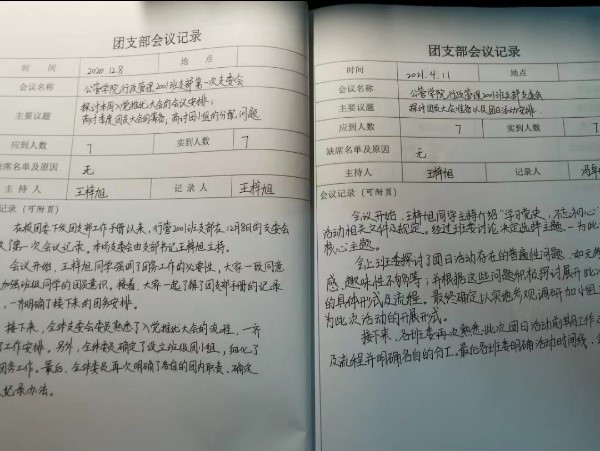 团支部会议记录
时间 2020.12.8 地点
会议名称 公管学院行政管理2001班支部第一次支委会
主要议题 探讨本周入党推优大会的会议安排;
商讨季度团员大会的筹备,商讨团小组的分配问题
应到人数 7 实到人数 7
缺席名单及原因 无
主持人 王梓旭 记录人 王梓旭
记录(可附页)
在校团委下发团支部工作手册以来,行管2001班支部在12月8日的支委会
第一次会议记录,本场支委会由支部书记王梓旭主持。
会议开始,王梓旭同学强调了团务工作的必要性,大家一致同意
加强班组同学的团员意识,接着,大家一起了解了团支部手册的记录
,一齐明确了接下来的团务安排。
接下来,全体支委会委员熟悉了入党推优大会的流程,一齐
了工作安排。另外,全体委员确定了设立班级团小组,细化了
团务工作。最后,全体委员再次明确了各自的团内职责,确定
记录办法。
团支部会议记录
时间 2021.4.11 地点
会议名称 公管学院行政管理2001班支部支委会
主要议题 探讨团员大会准备以及团日活动安排
应到人数 7 实到人数 7
缺席名单及原因 无
主持人 王梓旭 记录人
会议记录(可附页)
会议开始,王梓旭同学主持介绍“学习党史,不忘初心”
活动相关文件及规定。经过班委讨论,决定选择主题一为此
核心主题。
会上班委探讨了团日活动存在的普遍性问题,如无
感、趣味性不够等;并根据这些问题积极探讨展开此
的具体形式及流程。最终确定以实地参观,调研加小组
为此次活动的开展形式。
接下来,各班委再次熟悉此次团日活动前期工作
及流程并明确各自的分工,最后各班委明确活动时间线,